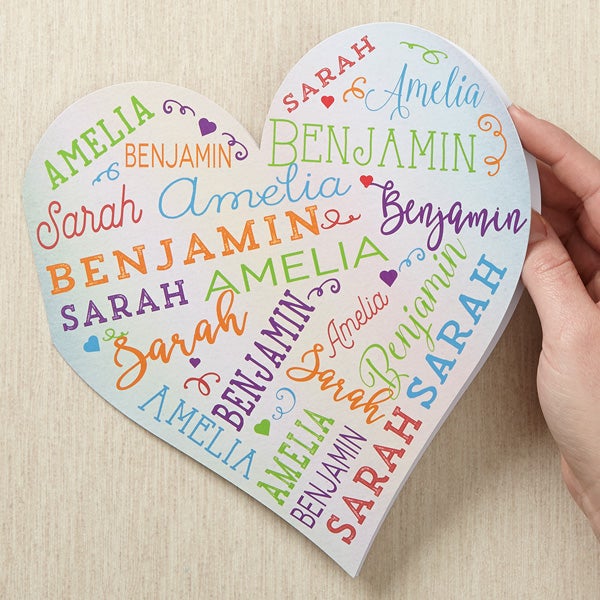 SARAH
Amelia
AMELIA
BENJAMIN
BENJAMIN
Sarah
Amelia
Benjamin
BENJAMIN
AMELIA
SARAH
Sarah
BENJAMIN
Amelia
Benjamin
SARAH
Sarah
AMELIA
AMELIA
BENJAMIN
SARAH